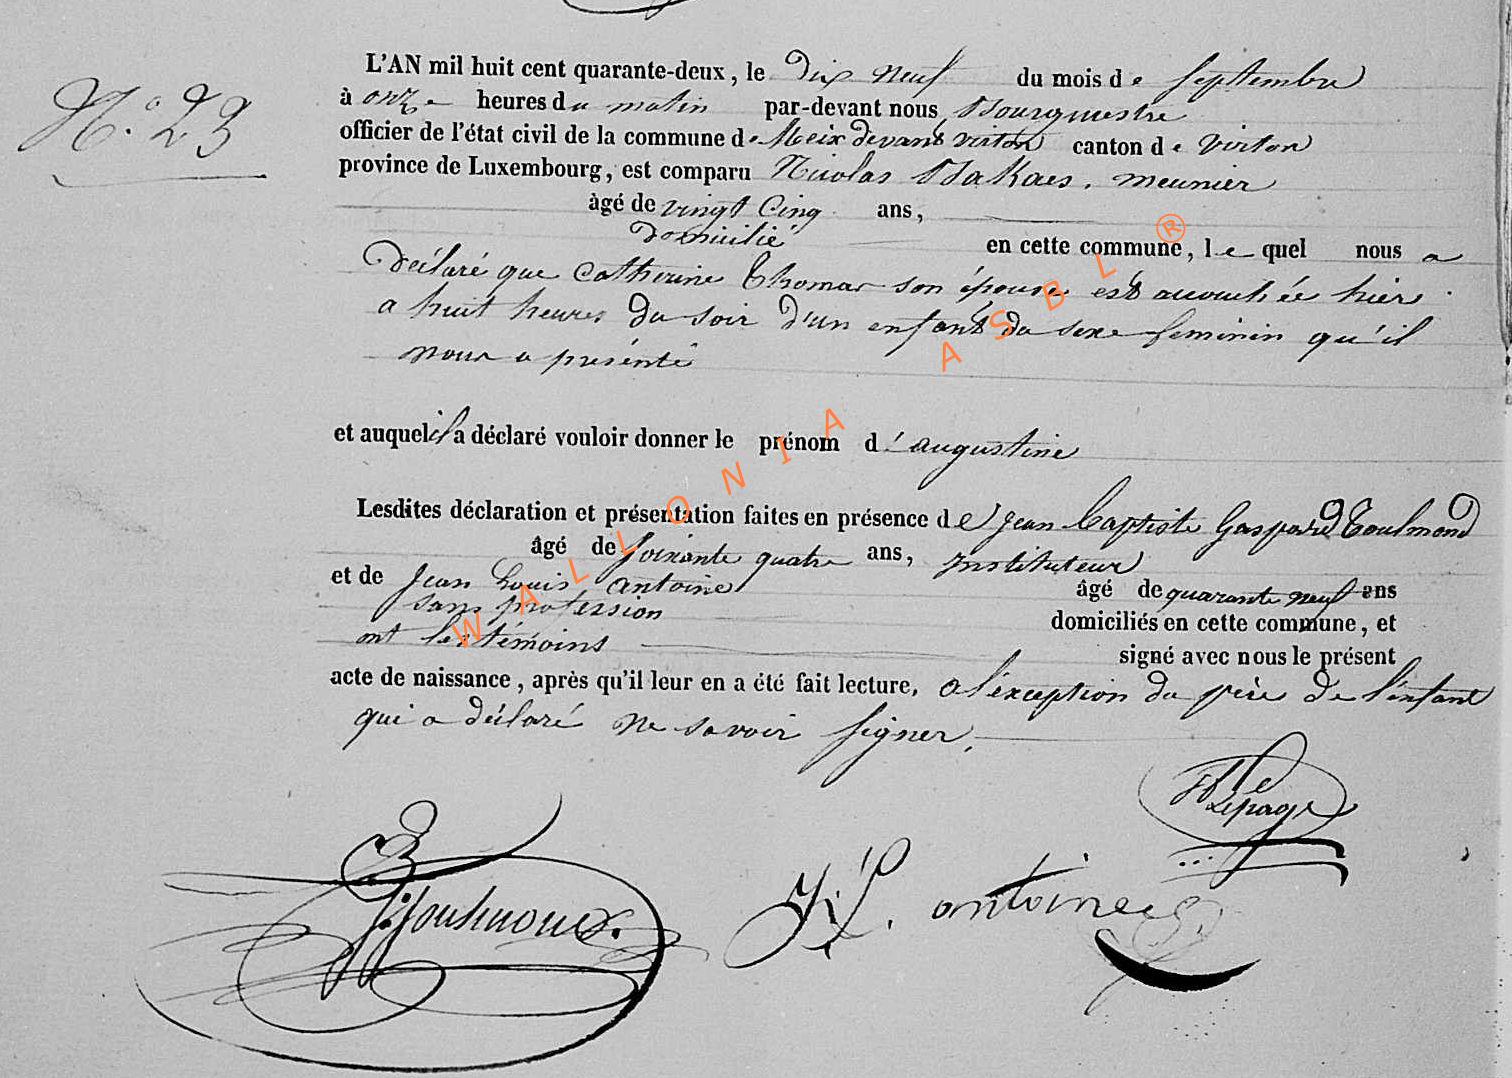 L'AN mil huit cent quarante-deux, le dix neuf du mois de Septembre
N.° 23
à onze heures du matin par-devant nous, Bourgmestre
officier de l'état civil de la commune de Meix devant virton canton de virton
province de Luxembourg, est comparu Nicolas Bakaes, meunier
âgé de vingt Cinq ans,
domicilié en cette commune, le quel nous a
déclaré que Catherine Thomas son épouse est accouchée hier
a huit heures du soir d'un enfant du sexe feminin qu'il
nous a présenté
et auquel il a déclaré vouloir donner le prénom d'augustine
Lesdites déclaration et présentation faites en présence de Jean Baptiste Gaspard Toulmond
âgé de soixante quatre ans, instituteur
et de Jean Louis antoine âgé de quarante neuf ans
sans profession domiciliés en cette commune, et
ont les témoins signé avec nous le présent
acte de naissance, après qu'il leur en a été fait lecture, a l'exception du père de l'enfant
qui a déclaré ne savoir signer.
Lepage
antoine
WALLONIA ASBL ®